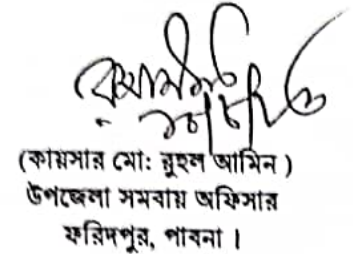 (কায়সার মো: রুহুল আমিন )
উপজেলা সমবায় অফিসার
ফরিদপুর, পাবনা ।